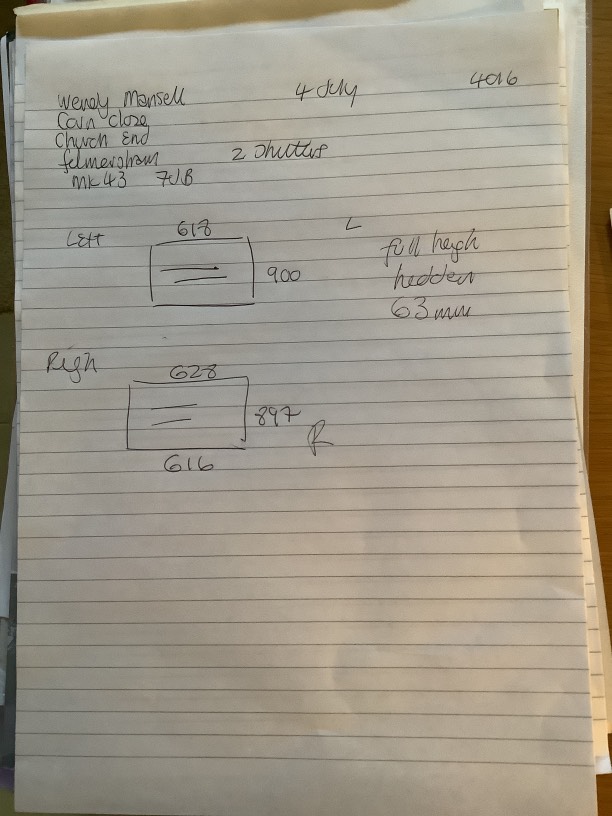 Wendy Mansell 4 July 4016
Corn Close
Church End
felmersham 2 Shutters
MK43 7JB
Left 618 L full heigh
900 hedden
63mm
Righ 628
897 R
616